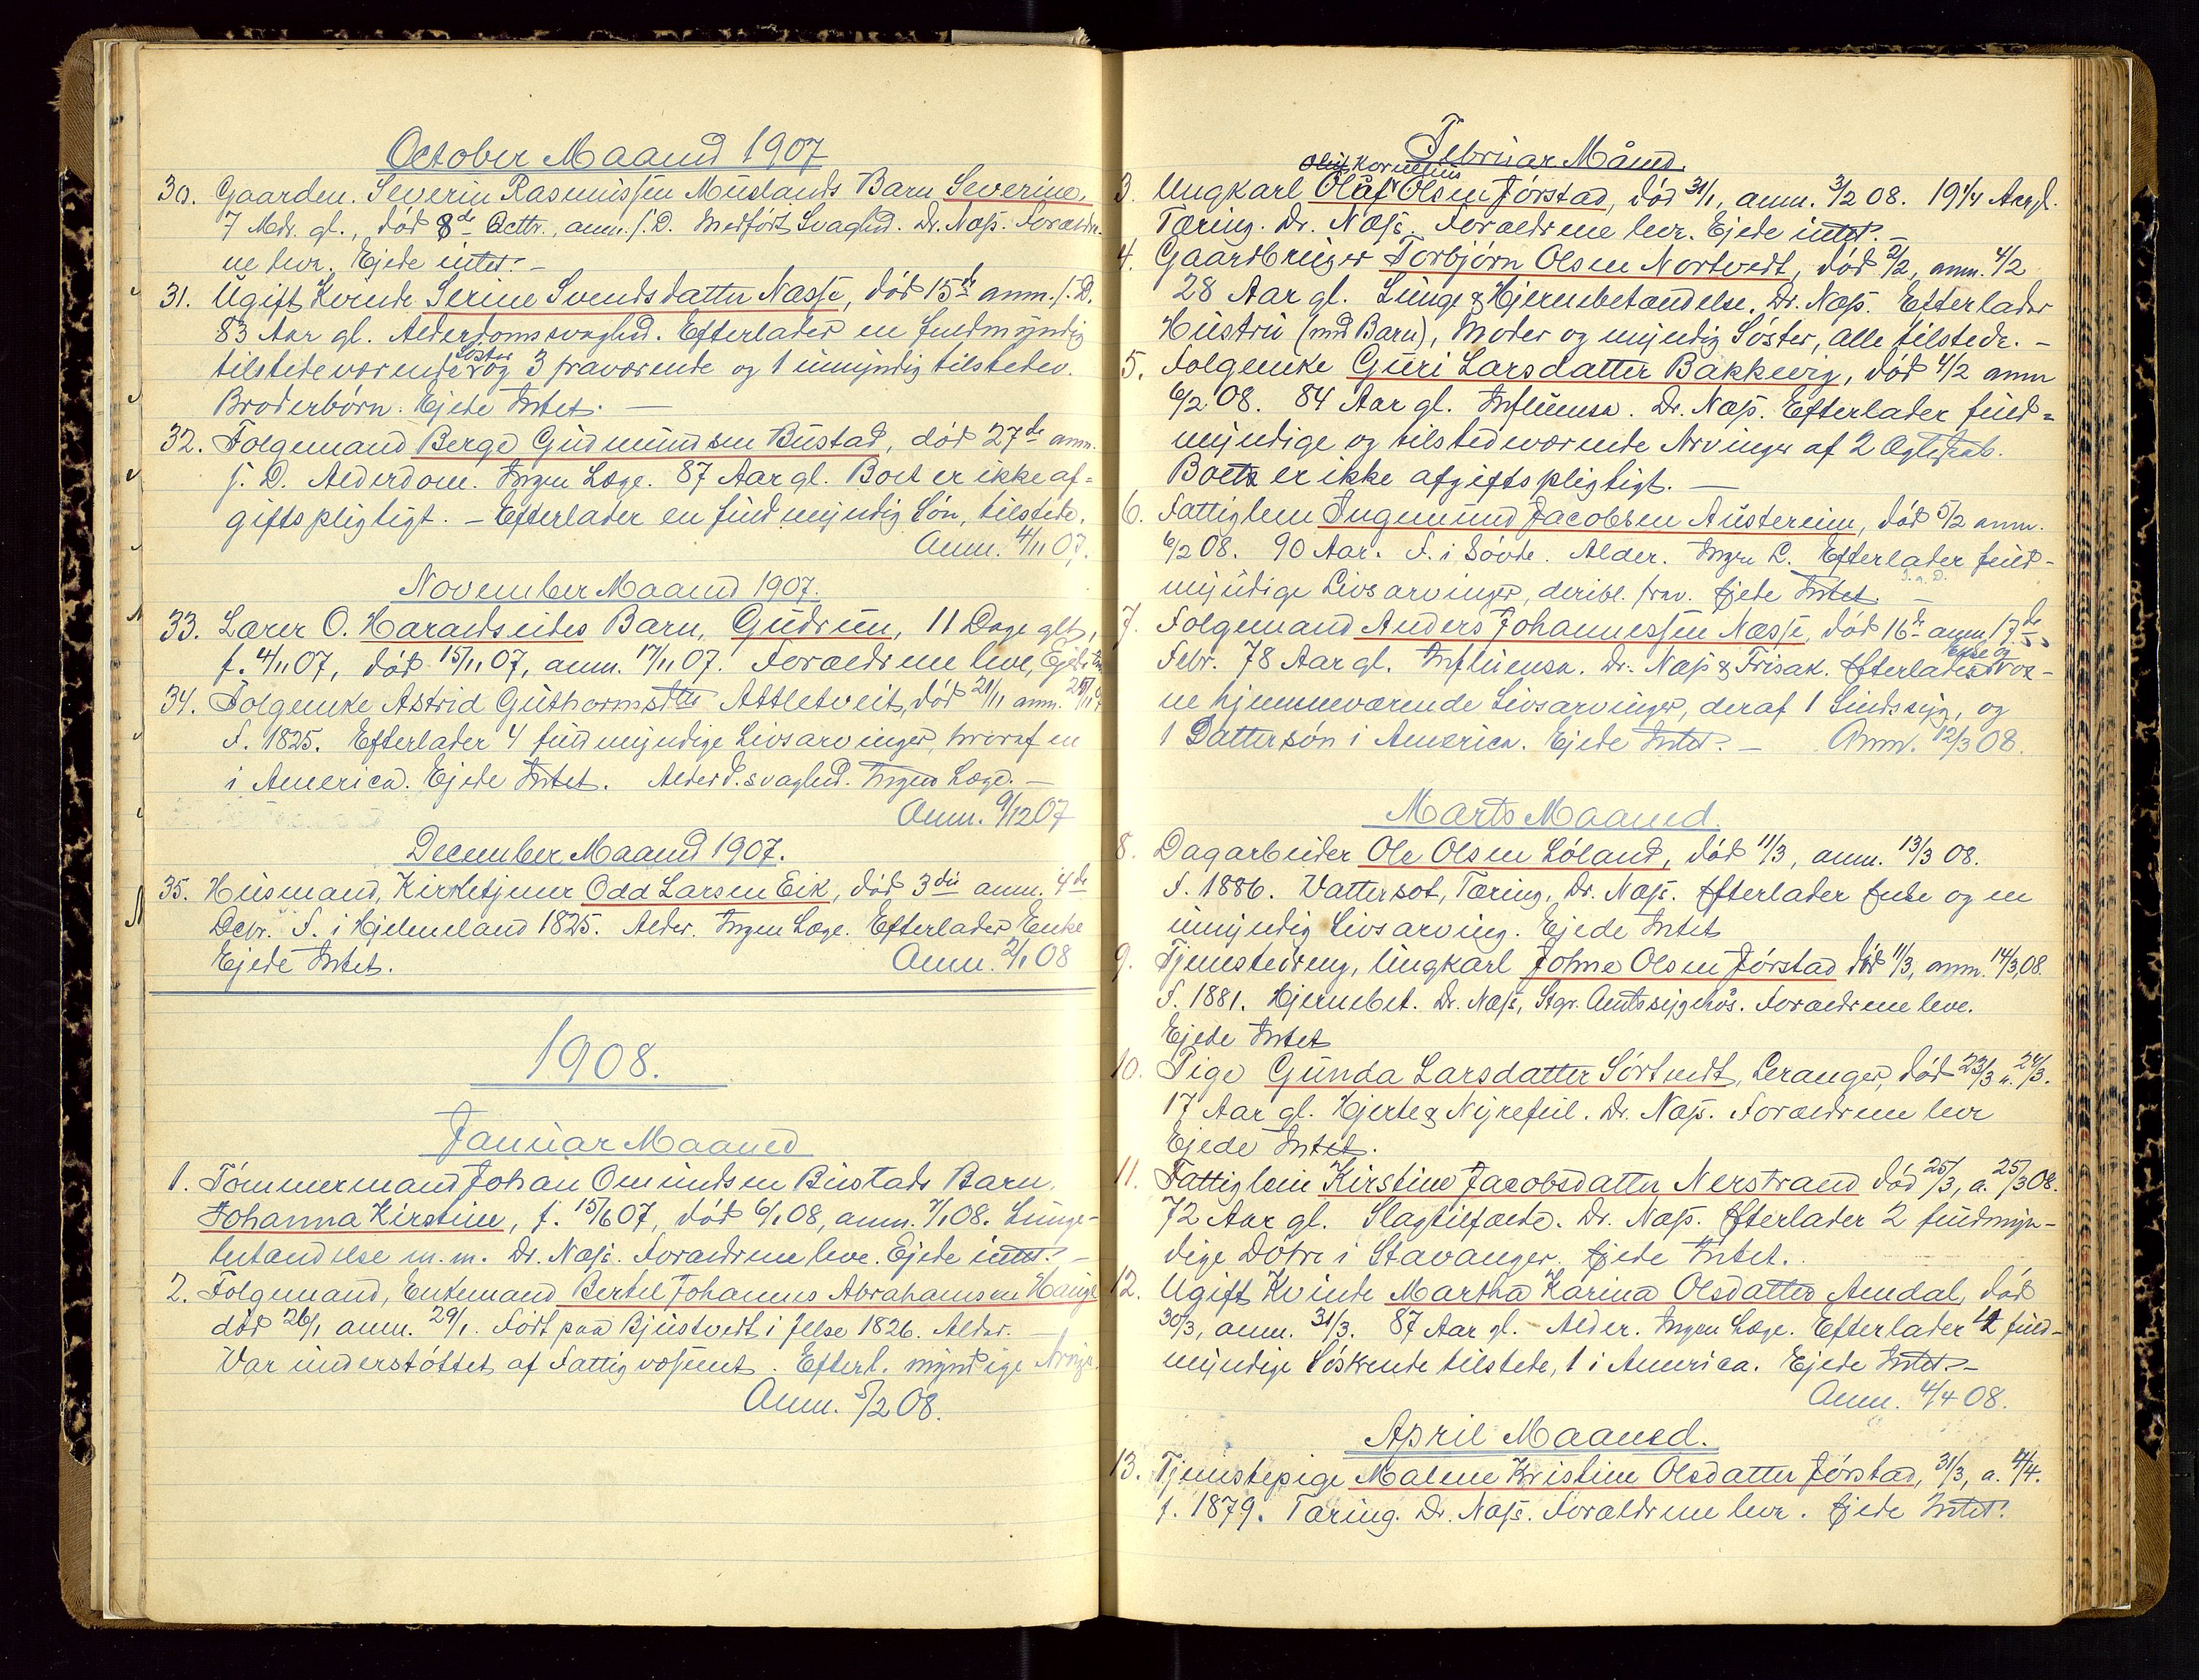 October Maaned 1907
30. Gaardm. Severin Rasmussen Muslands Barn Severine,
7 Mdr. gl., død 8de Octbr., anm. s. D. Medfødt Svaghed. Dr. Næss. Forældre-
ne lever. Ejede intet. –
31. Ugift Kvinde Serine Svendsdatter Næsse, død 15de anm. s. D.
83 Aar gl. Alderdomssvaghed. Efterlader en fuldmyndig
Søster
tilstedeværende og 3 fraværende og 1 umyndig tilstedev.
Broderbørn. Ejede Intet. –
32. Folgemand Berge Gudmundsen Bustad, død 27de anm.
s. D. Alderdom. Ingen Læge. 87 Aar gl. Boet er ikke af-
giftspligtigt. – Efterlader en fuldmyndig Søn, tilstede.
Anm. 4/11 07.
November Maaned 1907.
33. Lærer O. Haraldseides Barn, Gudrun, 11 Dage glt,
f. 4/11 07, død 15/11 07, anm. 17/11 07. Forældrene leve, Ejede Intet
34. Folgeenke Astrid Guthormsdtr Attletveit, død 21/11 anm. 25/11
F. 1825. Efterlader 4 fuldmyndige Livsarvinger, hvoraf en
i America. Ejede Intet. Alderd.svaghed. Ingen Læge. –
Anm. 9/12 07
December Maaned 1907.
35. Husmand, Kirketjener Odd Larsen Eik, død 3die anm. 4de
Decbr. F. i Hjelmeland 1825. Alder. Ingen Læge. Efterlader Enke
Ejede Intet. Anm. 2/1 08
1908.
Januar Maaned
1. Tømmermand Johan Omundsen Bustads Barn,
Johanna Kirstine, f. 15/6 07, død 6/1 08, anm. 7/1 08. Lunge-
betændelse m.m. Dr. Næss. Forældrene leve. Ejede intet. –
2. Folgemand, Enkemand Bertel Johannes Abrahamsen Hauge
død 26/1 anm. 29/1. Født paa Bjustvedt i Jelse 1826. Alder. –
Var understøttet af Fattigvæsenet. Efterl. myndige Arvinger.
Anm. 5/2 08.
Februar Måned.
Kornelius
3. Ungkarl Olaf Olsen Jørstad, død 31/1, anm. 3/2 08. 19 1/4 Aar gl.
Tæring. Dr. Næss. Forældrene lever. Ejede intet. –
4. Gaardbruger Torbjørn Olsen Nortvedt, død 2/2, anm. 4/2
28 Aar gl. Lunge & Hjernebetændelse. Dr. Næss. Efterlader
Hustru (med Barn), Moder og myndig Søster, alle tilstede. –
5. Folgeenke Guri Larsdatter Bakkevig, død 4/2 anm
6/2 08. 84 Aar gl. Influensa. Dr. Næss. Efterlader fuld-
myndige og tilstedeværende Arvinger af 2 Ægteskab.
Boet er ikke afgiftspligtigt. –
6. Fattiglem Ingemund Jacobsen Austereim, død 5/2 anm.
6/2 08. 90 Aar. F. i Søvde. Alder. Ingen L. Efterlader fuld-
myndige Livsarvinger, deribl. frav. Ejede Intet. –
7. Folgemand Anders Johannessen Næsse, død 16de anm. 17de
Enke og
Febr. 78 Aar gl. Influensa. Dr. Næss & Frisak. Efterlader vox-
ne hjemmeværende Livsarvinger, deraf 1 Sindssyg, og
1 Dattersøn i America. Ejede Intet. – Anm. 12/3 08.
Marts Maaned.
8. Dagarbeider Ole Olsen Løland, død 11/3, anm. 13/3 08.
F. 1886. Vattersot, Tæring. Dr. Næss. Efterlader Enke og en
umyndig Livsarving. Ejede Intet
9. Tjenstedreng, Ungkarl Johne Olsen Jørstad død 11/3, anm. 14/3 08.
F. 1881. Hjernebet. Dr. Næss, Stgr. Amtssygehus. Forældrene leve.
Ejede Intet
10. Pige Gunda Larsdatter Sørtvedt, Leranger, død 23/3 a. 24/3.
17 Aar gl. Hjerte & Nyrefeil. Dr. Næss. Forældrene lever
Ejede Intet.
11. Fattiglem Kirstine Jacobsdatter Nerstrand død 25/3, a. 25/3 08.
72 Aar gl. Slagtilfælde. Dr. Næss. Efterlader 2 fuldmyn-
dige Døtre i Stavanger. Ejede Intet.
12. Ugift Kvinde Martha Karina Olsdatter Amdal, død
30/3, anm. 31/3. 87 Aar gl. Alder. Ingen Læge. Efterlader 4 fuld-
myndige Søskende tilstede, 1 i America. Ejede Intet. –
Anm. 4/4 08.
April Maaned.
13. Tjenstepige Malene Kristine Olsdatter Jørstad, 31/3, a. 4/4.
f. 1879. Tæring. Dr. Næss. Forældrene lever. Ejede Intet.